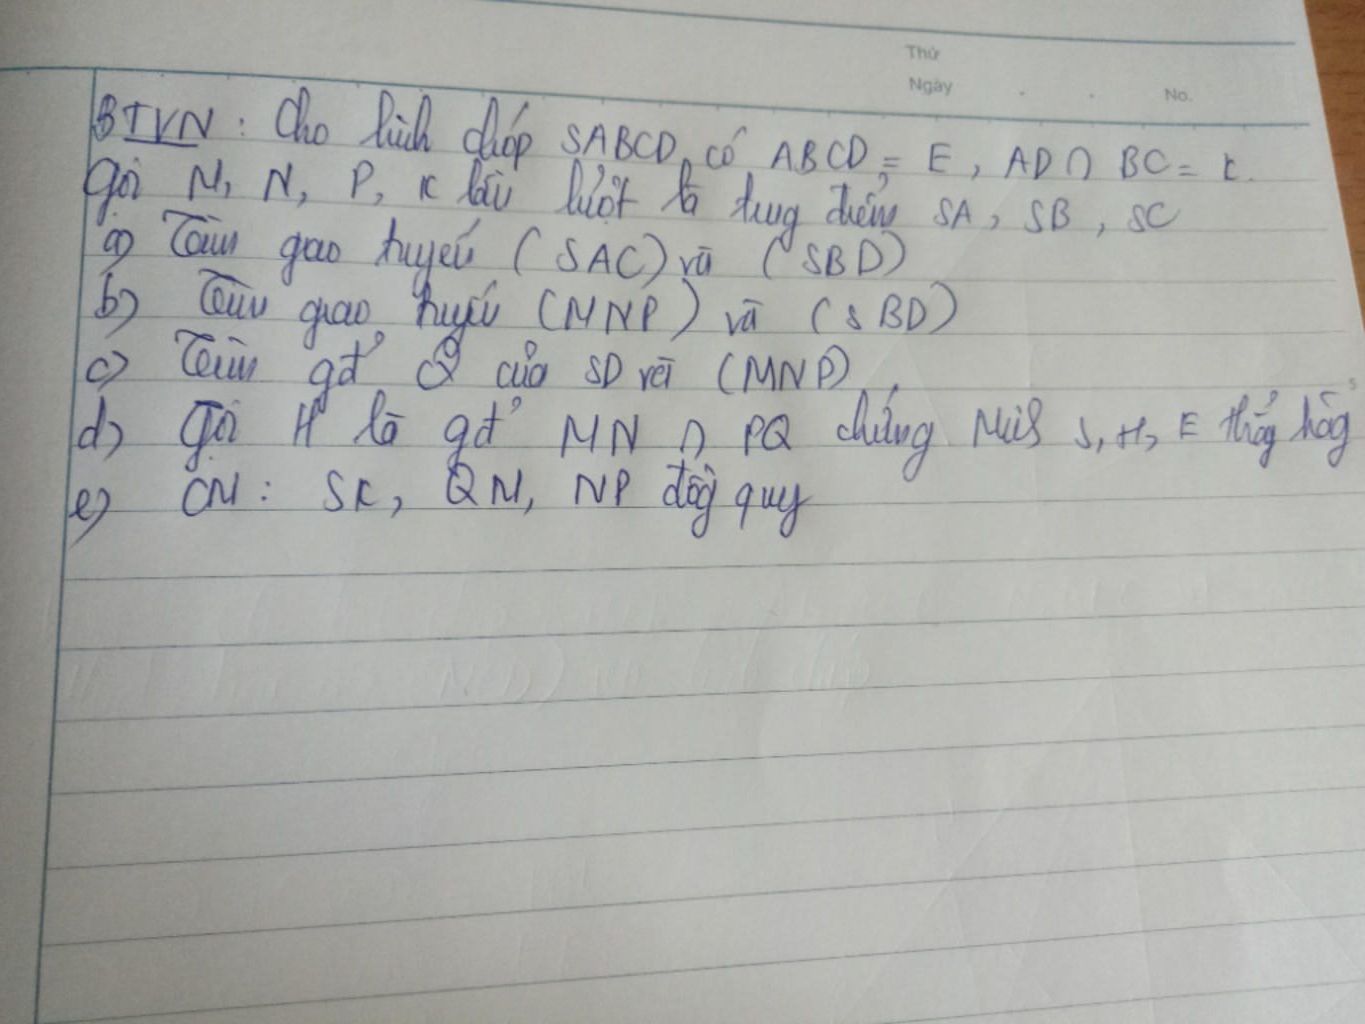 Thứ
Ngày . . No.
BTVN : Cho hình chóp SABCD có ABCD = E, AD ∩ BC = K.
Gọi M, N, P, K lần lượt là trung điểm SA, SB, SC
a) Tìm giao tuyến (SAC) và (SBD)
b) Tìm giao tuyến (MNP) và (SBD)
c) Tìm gđ' Q của SD với (MNP)
d) Gọi H là gđ' MN ∩ PQ chứng Minh S, H, E thẳng hàng
e) CM : SK, QM, NP đồng quy